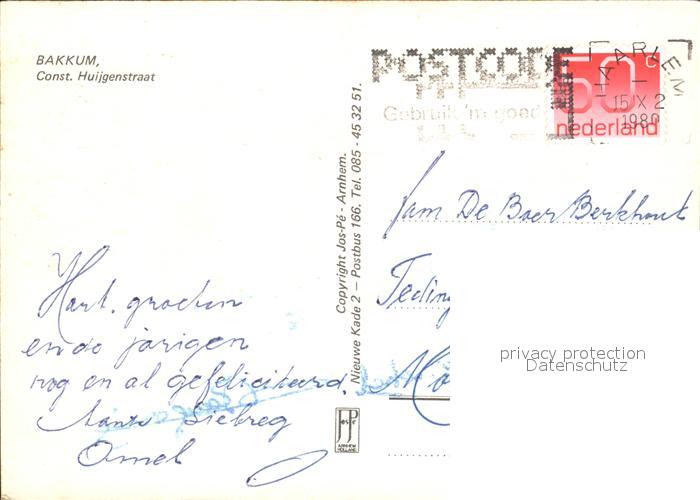 BAKKUM,
Const. Huijgenstraat
POSTCODE
Gebruik 'm goed
HAARLEM
15 IX 2
1980
50 c
nederland
Copyright Jos-Pé - Arnhem.
Nieuwe Kade 2 - Postbus 166. Tel. 085 - 45 32 51.
Fam De Boer Berkhout
Teding
Hart. groeten
en de jarigen
nog en al gefeliciteerd.
Tante Siebreg
Omel
JosPé
ARNHEM
HOLLAND
privacy protection
Datenschutz